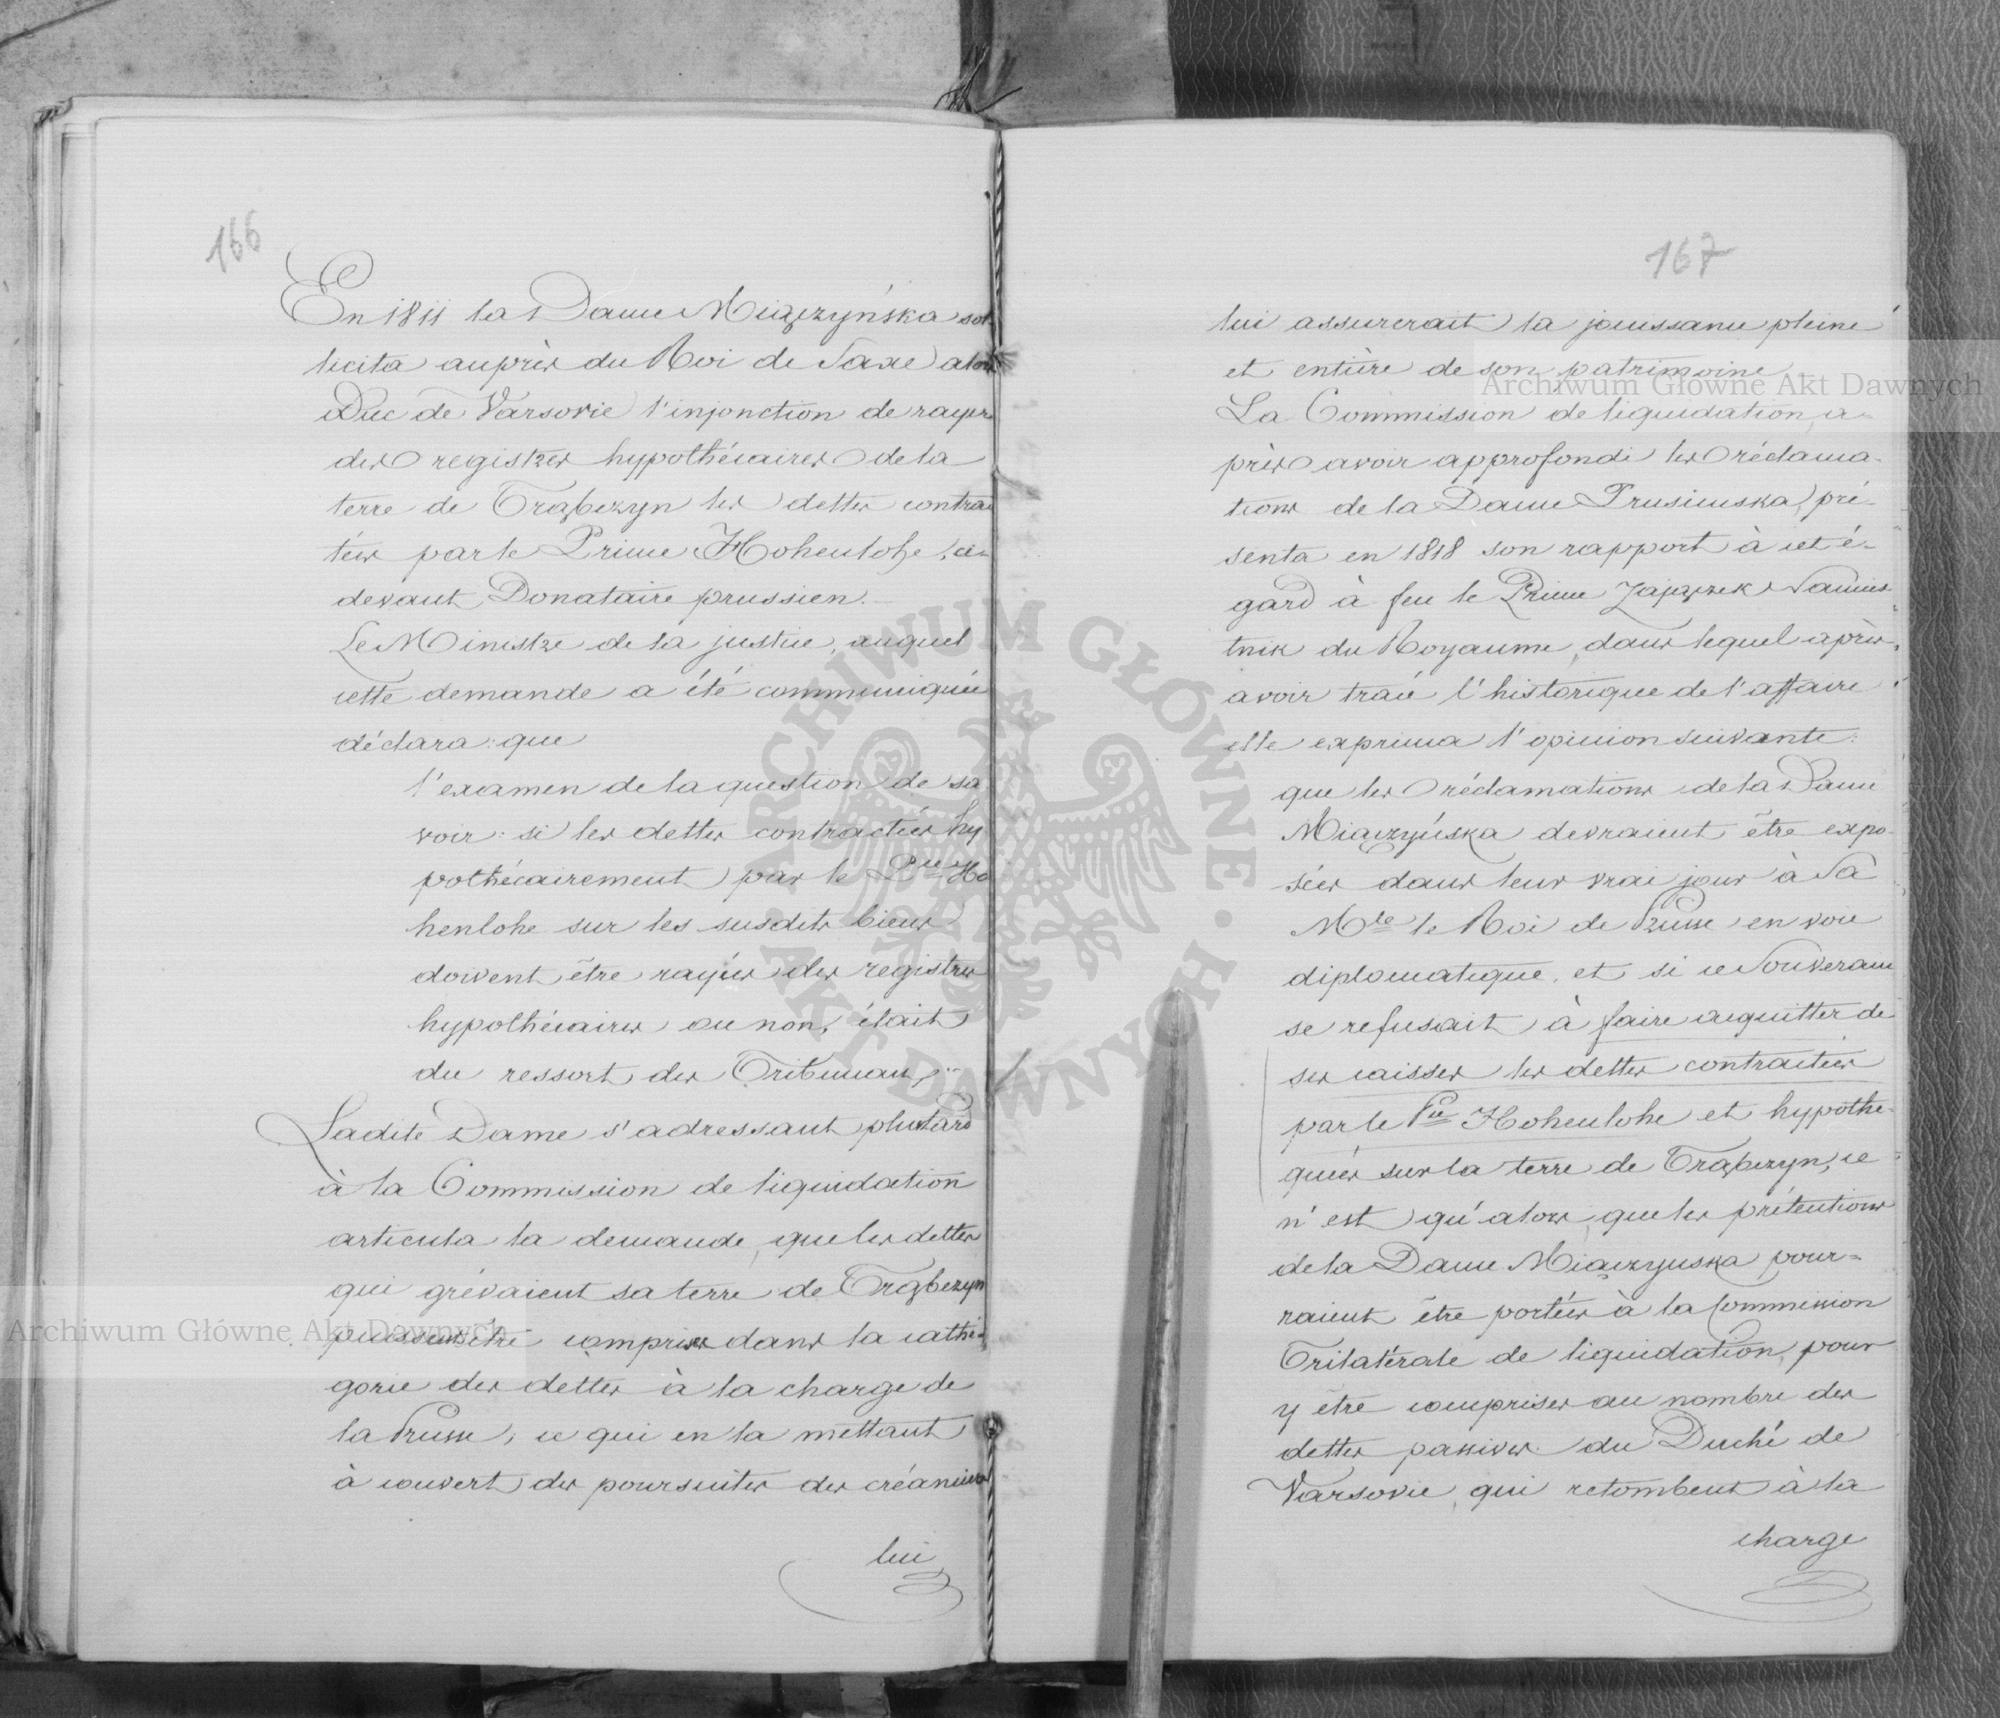 166
En 1811 la Dame Miączyńska sol
licita auprès du Roi de Saxe alors
Duc de Varsovie l'injonction de rayer
des registres hypothécaires de la
terre de Trąbczyn les dettes contrac
tées par le Prince Hohenlohe, ci-
devant Donataire prussien.
Le Ministre de la justice, auquel
cette demande a été communiquée
déclara: que
l'examen de la question de sa
voir: si les dettes contractées hy
pothécairement par le Pce Ho
henlohe sur les susdits biens
doivent être rayées des registres
hypothécaires ou non, était
du ressort des Tribunaux,
Ladite Dame s'adressant plustard
à la Commission de liquidation
articula la demande, que les dettes
qui grévaient sa terre de Trąbczyn
puissent être comprises dans la cathé-
gorie des dettes à la charge de
la Prusse, ce qui en la mettant
à couvert des poursuites des créanciers
lui
167
lui assurerait la jouissance pleine
et entière de son patrimoine.
La Commission de liquidation, a-
près avoir approfondi les réclama-
tions de la Dame Prusimska, pré-
senta en 1818 son rapport à cet é-
gard à feu le Prince Zajączek Namies-
tnik du Royaume, dans lequel après
avoir tracé l'historique de l'affaire
elle exprima l'opinion suivante:
que les réclamations de la Dame
Miączyńska devraient être expo-
sées dans leur vrai jour à Sa
Mté le Roi de Prusse en voie
diplomatique, et si ce Souverain
se refusait à faire acquitter de
ses caisses les dettes contractées
par le Pce Hohenlohe et hypothe-
quées sur la terre de Trąbczyn, ce
n'est qu'alors, que les prétentions
de la Dame Miączynska pour=
raient être portées à la Commission
Trilatérale de liquidation, pour
y être comprises au nombre des
dettes passives du Duché de
Varsovie, qui retombent à la
charge
Archiwum Główne Akt Dawnych
Archiwum Główne Akt Dawnych
ARCHIWUM GŁÓWNE · AKT DAWNYCH ·